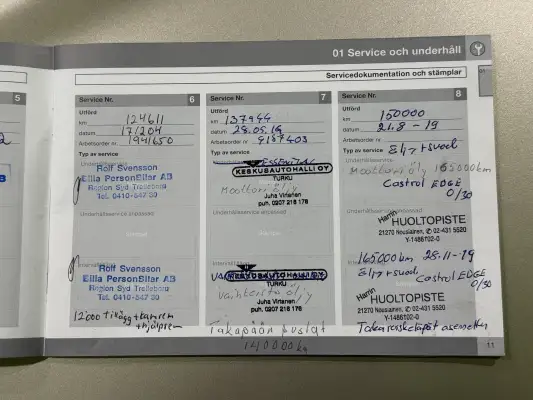 01 Service och underhåll
01
Servicedokumentation och stämplar
5
Service Nr. 6
Utförd
km 124611
datum 171204
Arbetsorder nr 1941650
Typ av service
Underhållsservice
Rolf Svensson
Bilia PersonBilar AB
Region Syd Trelleborg
Tel. 0410-547 30
Underhållsservice anpassad
Rolf Svensson
Bilia PersonBilar AB
Region Syd Trelleborg
Tel. 0410-547 30
+ kamrem
+ hjälprem
Service Nr. 7
Utförd
km 137944
datum 28.05.18
Arbetsorder nr 9167403
Typ av service
ESSENTIAL
KESKUSAUTOHALLI OY
TURKU
Moottoriöljy
Juha Virtanen
puh. 0207 216 178
Underhållsservice anpassad
KESKUSAUTOHALLI OY
TURKU
Vaihteisto öljy
Juha Virtanen
puh. 0207 216 178
Takapään puslat
140000km
Service Nr. 8
Utförd
km 150000
datum 21.8-19
Arbetsorder nr
Typ av service Öljy + suod
Underhållsservice
Moottoriöljy 165000km
Castrol EDGE
0/30
Harrin HUOLTOPISTE
21270 Nousiainen, 02-431 5520
Y-1486102-0
165000km 28.11-19
Öljy + suod
Castrol EDGE
0/30
Harrin HUOLTOPISTE
21270 Nousiainen, 02-431 5520
Y-1486102-0
11